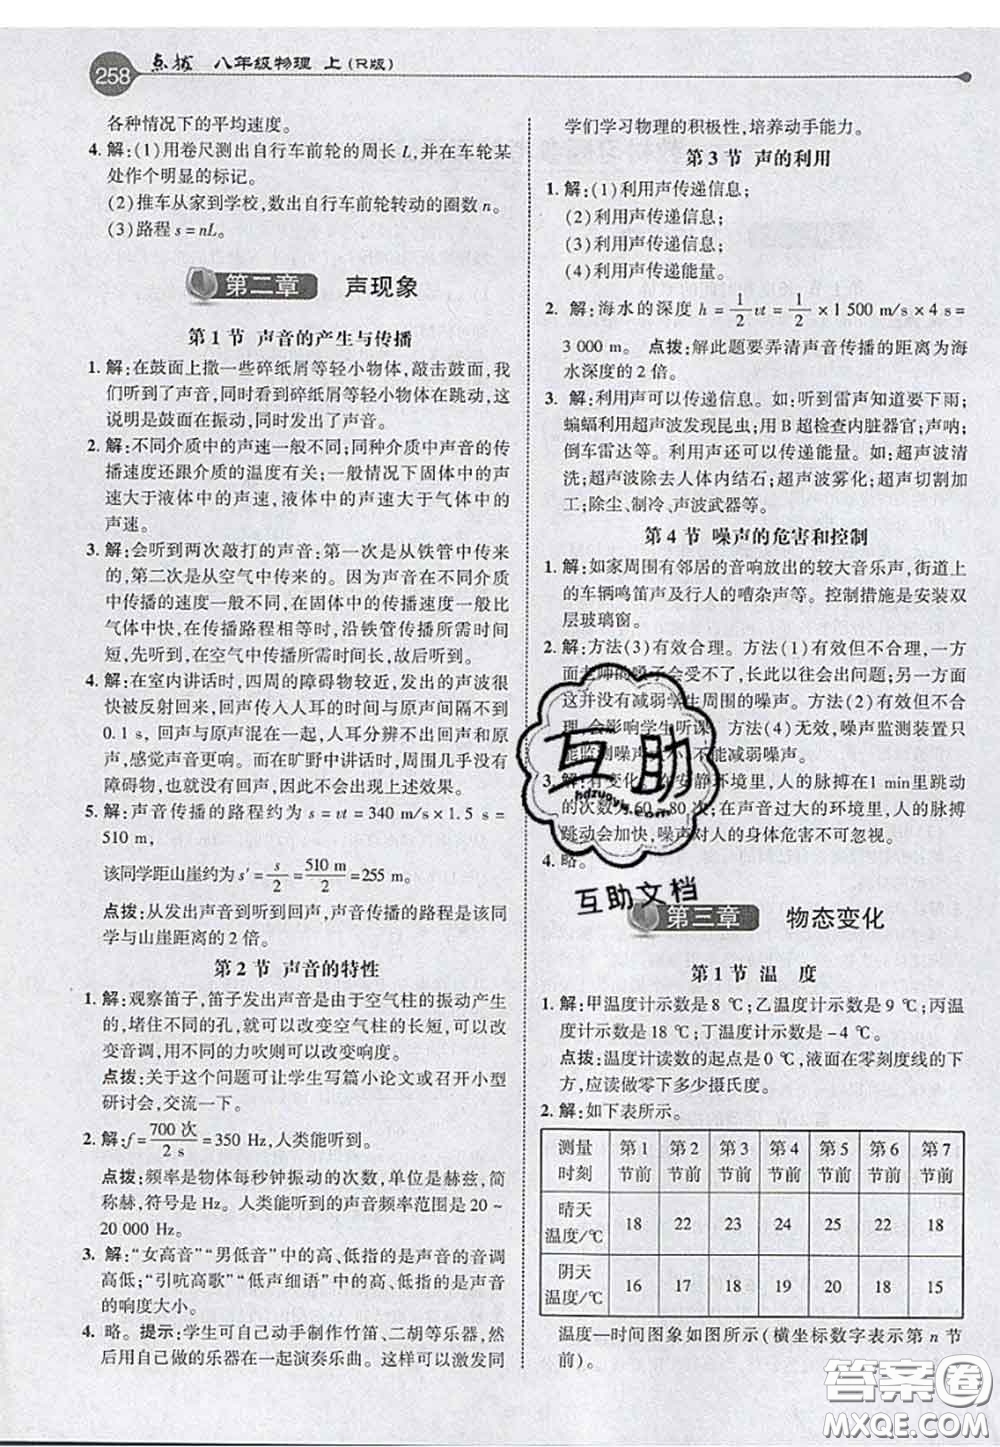 258 点拨 八年级物理 上(R版)
各种情况下的平均速度。
4. 解:(1)用卷尺测出自行车前轮的周长 L,并在车轮某
处作个明显的标记。
(2)推车从家到学校,数出自行车前轮转动的圈数 n。
(3)路程 s=nL。
第二章 声现象
第 1 节 声音的产生与传播
1. 解:在鼓面上撒一些碎纸屑等轻小物体,敲击鼓面,我
们听到了声音,同时看到碎纸屑等轻小物体在跳动,这
说明是鼓面在振动,同时发出了声音。
2. 解:不同介质中的声速一般不同;同种介质中声音的传
播速度还跟介质的温度有关;一般情况下固体中的声
速大于液体中的声速,液体中的声速大于气体中的
声速。
3. 解:会听到两次敲打的声音:第一次是从铁管中传来
的,第二次是从空气中传来的。因为声音在不同介质
中传播的速度一般不同,在固体中的传播速度一般比
气体中快,在传播路程相等时,沿铁管传播所需时间
短,先听到,在空气中传播所需时间长,故后听到。
4. 解:在室内讲话时,四周的障碍物较近,发出的声波很
快被反射回来,回声传入人耳的时间与原声间隔不到
0.1 s,回声与原声混在一起,人耳分辨不出回声和原
声,感觉声音更响。而在旷野中讲话时,周围几乎没有
障碍物,也就没有回声,因此不会出现上述效果。
5. 解:声音传播的路程约为 s=vt=340 m/s×1.5 s=
510 m,
该同学距山崖约为 s′=s/2=510 m/2=255 m。
点拨:从发出声音到听到回声,声音传播的路程是该同
学与山崖距离的 2 倍。
第 2 节 声音的特性
1. 解:观察笛子,笛子发出声音是由于空气柱的振动产生
的,堵住不同的孔,就可以改变空气柱的长短,可以改
变音调,用不同的力吹则可以改变响度。
点拨:关于这个问题可让学生写篇小论文或召开小型
研讨会,交流一下。
2. 解:f=700 次/2 s=350 Hz,人类能听到。
点拨:频率是物体每秒钟振动的次数,单位是赫兹,简
称赫,符号是 Hz。人类能听到的声音频率范围是 20~
20 000 Hz。
3. 解:“女高音”“男低音”中的高、低指的是声音的音调
高低;“引吭高歌”“低声细语”中的高、低指的是声音
的响度大小。
4. 略。提示:学生可自己动手制作竹笛、二胡等乐器,然
后用自己做的乐器在一起演奏乐曲。这样可以激发同
学们学习物理的积极性,培养动手能力。
第 3 节 声的利用
1. 解:(1)利用声传递信息;
(2)利用声传递信息;
(3)利用声传递信息;
(4)利用声传递能量。
2. 解:海水的深度 h=1/2 vt=1/2×1 500 m/s×4 s=
3 000 m。 点拨:解此题要弄清声音传播的距离为海
水深度的 2 倍。
3. 解:利用声可以传递信息。如:听到雷声知道要下雨;
蝙蝠利用超声波发现昆虫;用 B 超检查内脏器官;声呐;
倒车雷达等。利用声还可以传递能量。如:超声波清
洗;超声波除去人体内结石;超声波雾化;超声切割加
工;除尘、制冷、声波武器等。
第 4 节 噪声的危害和控制
1. 解:如家周围有邻居的音响放出的较大音乐声,街道上
的车辆鸣笛声及行人的嘈杂声等。控制措施是安装双
层玻璃窗。
2. 解:方法(3)有效合理。方法(1)有效但不合理,一方
面老师的嗓子会受不了,长此以往会出问题;另一方面
这并没有减弱学生周围的噪声。方法(2)有效但不合
理,会影响学生听课。方法(4)无效,噪声监测装置只
能监测噪声,不能减弱噪声。
3. 解:有变化。在安静环境里,人的脉搏在 1 min 里跳动
的次数为 60~80 次;在声音过大的环境里,人的脉搏
跳动会加快,噪声对人的身体危害不可忽视。
4. 略。
互助
hdzuoye.com
互助文档
第三章 物态变化
第 1 节 温 度
1. 解:甲温度计示数是 8 ℃;乙温度计示数是 9 ℃;丙温
度计示数是 18 ℃;丁温度计示数是 -4 ℃。
点拨:温度计读数的起点是 0 ℃,液面在零刻度线的下
方,应读做零下多少摄氏度。
2. 解:如下表所示。
测量时刻 第 1 节前 第 2 节前 第 3 节前 第 4 节前 第 5 节前 第 6 节前 第 7 节前
晴天温度/℃ 18 22 23 24 25 22 18
阴天温度/℃ 16 17 18 19 20 18 15
温度—时间图象如图所示(横坐标数字表示第 n 节
前)。
答案圈
MXQE.COM